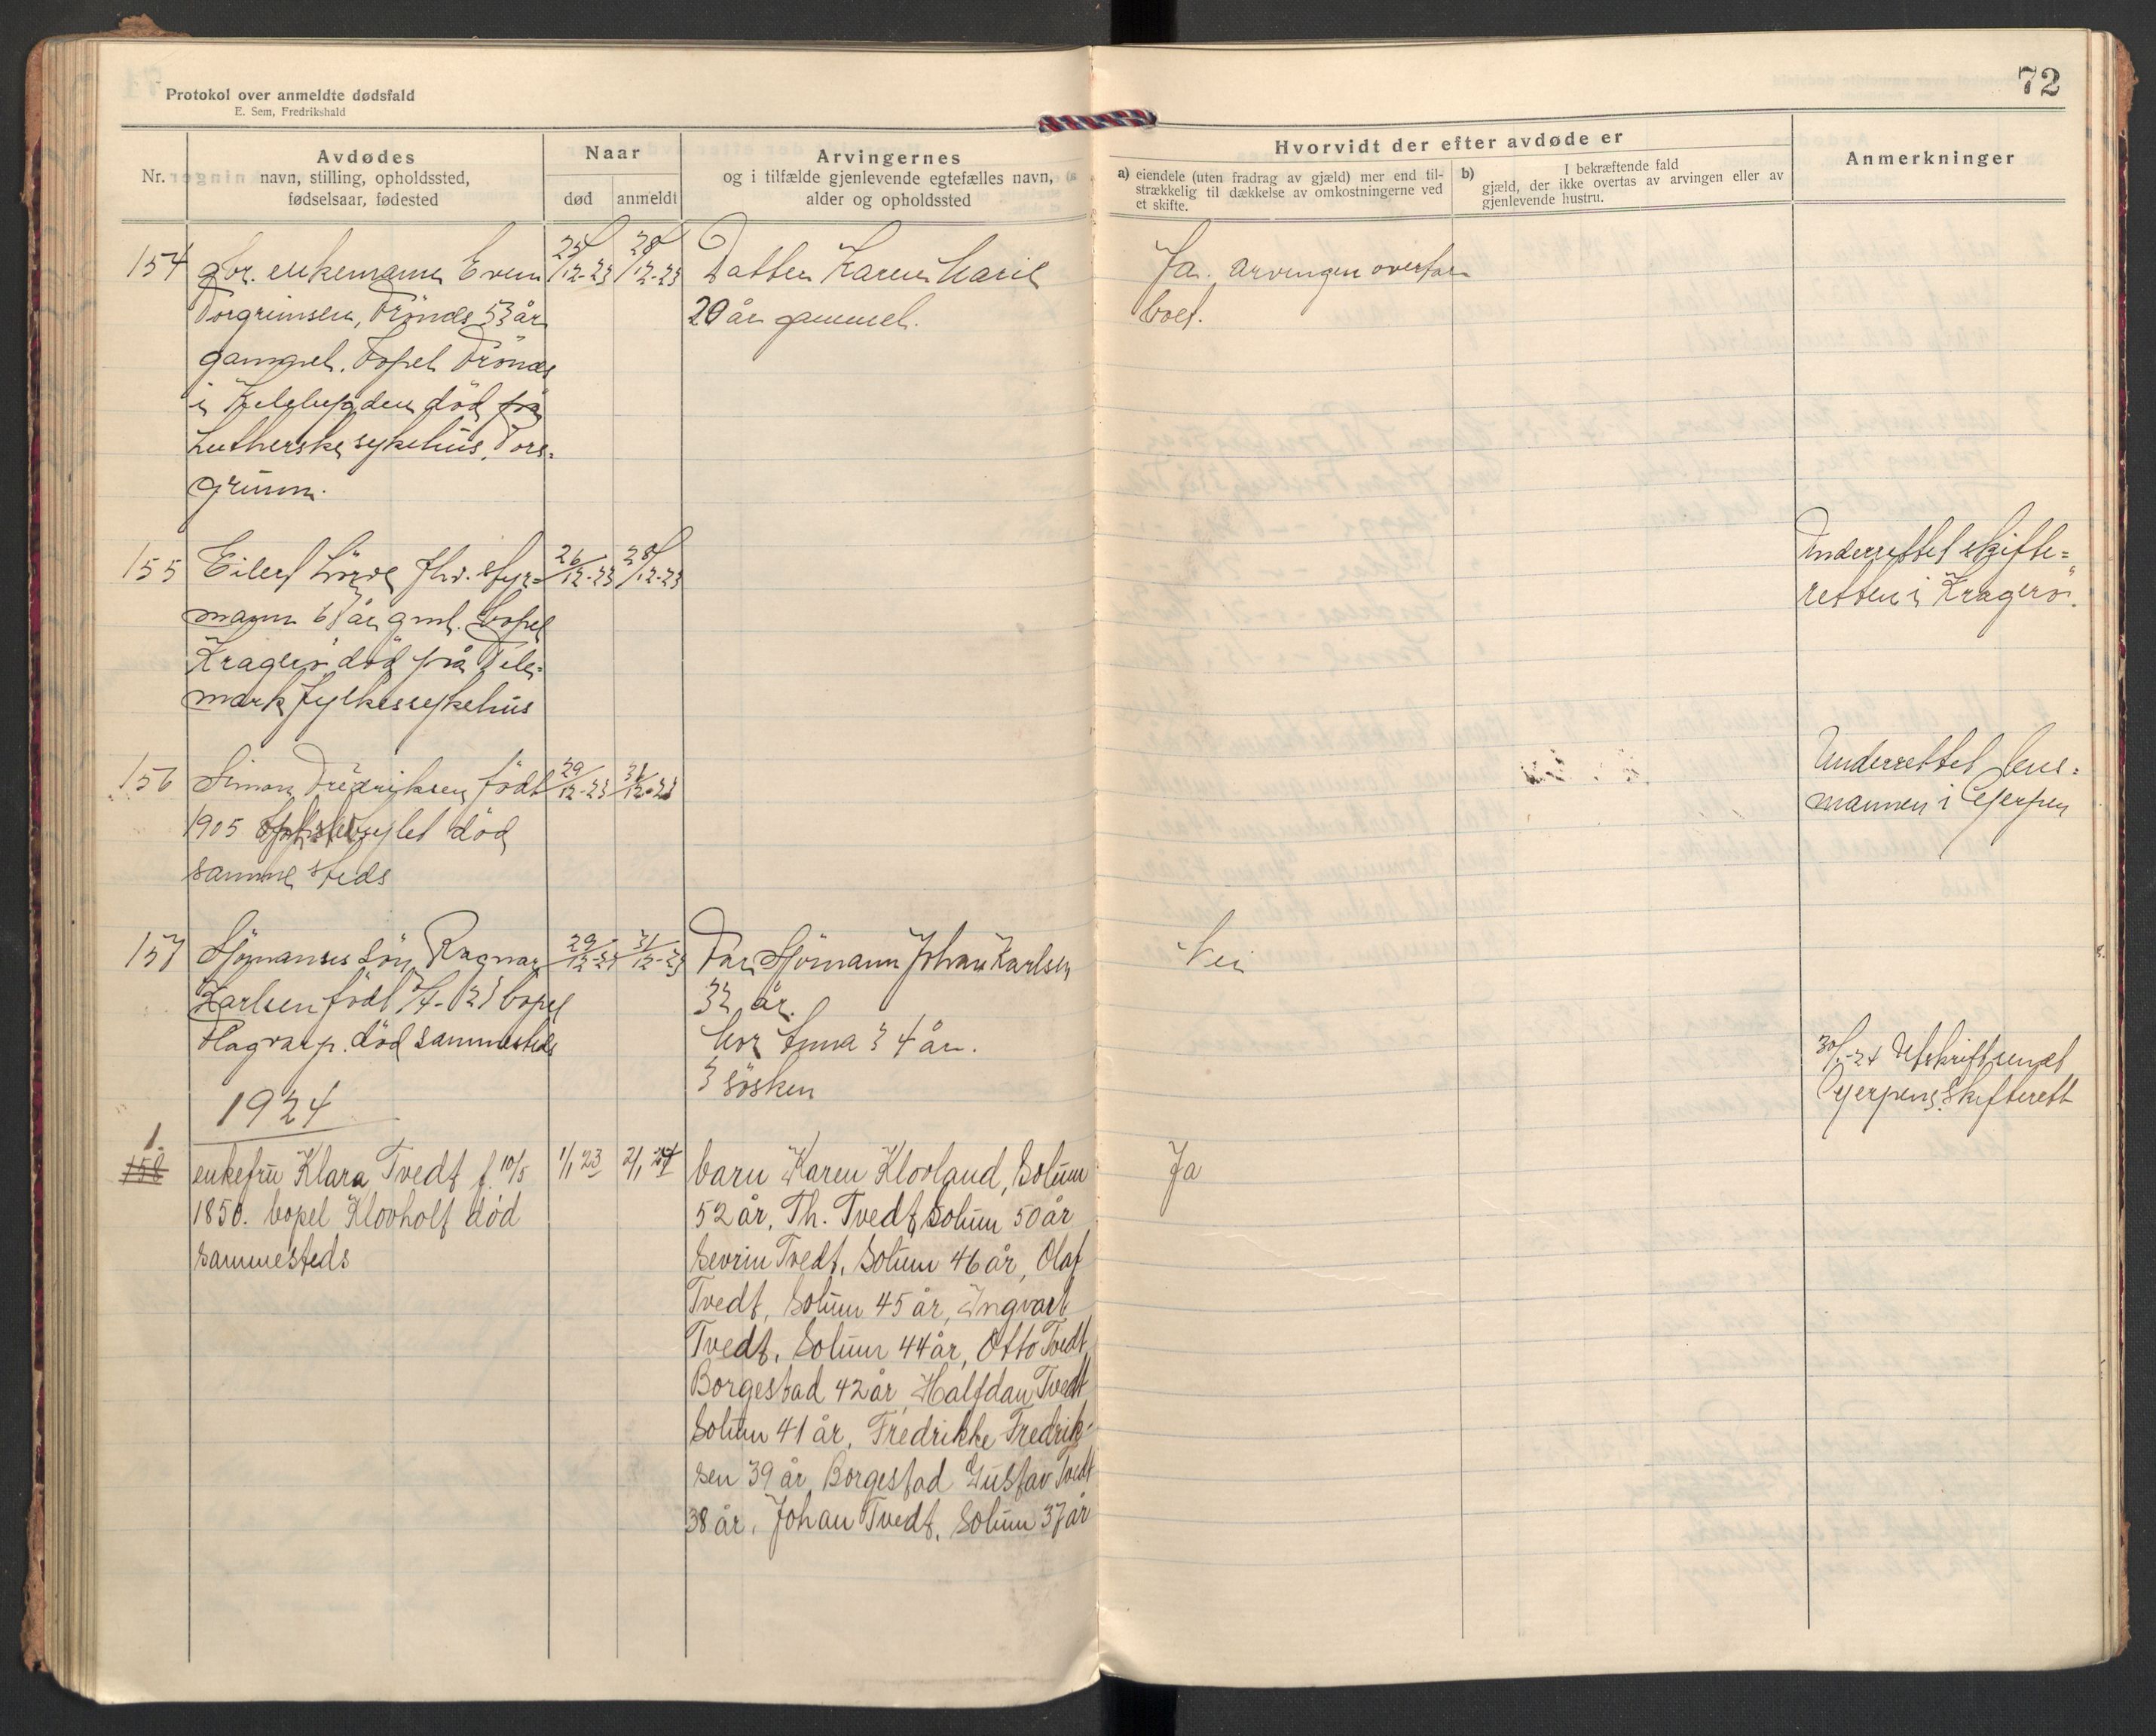 72
Protokol over anmeldte dødsfald
E. Sem, Fredrikshald
Nr.
Avdødes
navn, stilling, opholdssted,
fødselsaar, fødested
Naar
død
anmeldt
Arvingernes
og i tilfælde gjenlevende egtefælles navn,
alder og opholdssted
Hvorvidt der efter avdøde er
a) eiendele (uten fradrag av gjæld) mer end til-
strækkelig til dækkelse av omkostningerne ved
et skifte.
b) I bekræftende fald
gjæld, der ikke overtas av arvingen eller av
gjenlevende hustru.
Anmerkninger
154 enkemann Even
Torgrimsen, 53 år
gammel. bopel
i død på
Lutherske sykehus, Pors-
grunn.
25/12-23 28/12-23
Datter Karen Marie
20 år gammel.
Ja. arvingen overtar
boet.
155 styr-
mann år gml. bopel
Kragerö död på Tele-
mark fylkessykehus
26/12-23 28/12-23
Underrettet skifte-
retten i Kragerö.
156 Simon Fredriksen født
1905 död
samme steds
29/12-23 31/12-23
Underrettet lens-
mannen i Gjerpen
157 Sjömanns sön Ragnar
Karlsen födt bopel
död sammesteds
29/12-23 31/12-23
Far Sjömann Johan Karlsen
32 år.
Mor Anna 34 år.
3 sösken
Nei
30/1-24 Utskrift sendt
Gjerpens Skifterett
1924
1.
158 enkefru Klara Tvedt f. 10/5
1850. bopel Klovholt död
sammesteds
1/1 23 2/1 24
barn Karen Klovland, Solum
52 år, Th. Tvedt, Solum 50 år
Sevrin Tvedt, Solum 46 år, Olaf
Tvedt, Solum 45 år, Ingvart
Tvedt, Solum 44 år, Otto Tvedt,
Borgestad 42 år, Halfdan Tvedt
Solum 41 år, Fredrikke Fredrik-
sen 39 år, Borgestad Gustav Tvedt
38 år, Johan Tvedt, Solum 37 år
Ja